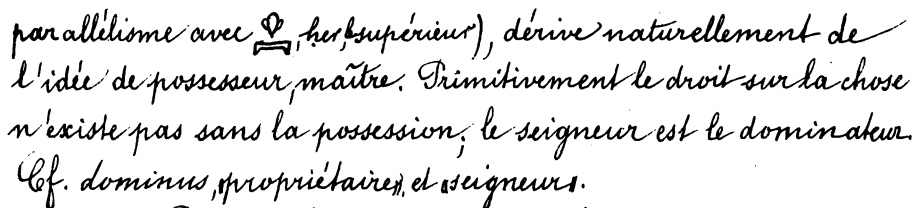 parallélisme avec 𓁷, ḥer, « supérieur »), dérive naturellement de
l'idée de possesseur, maître. Primitivement le droit sur la chose
n'existe pas sans la possession; le seigneur est le dominateur.
Cf. dominus, « propriétaire », et « seigneur ».